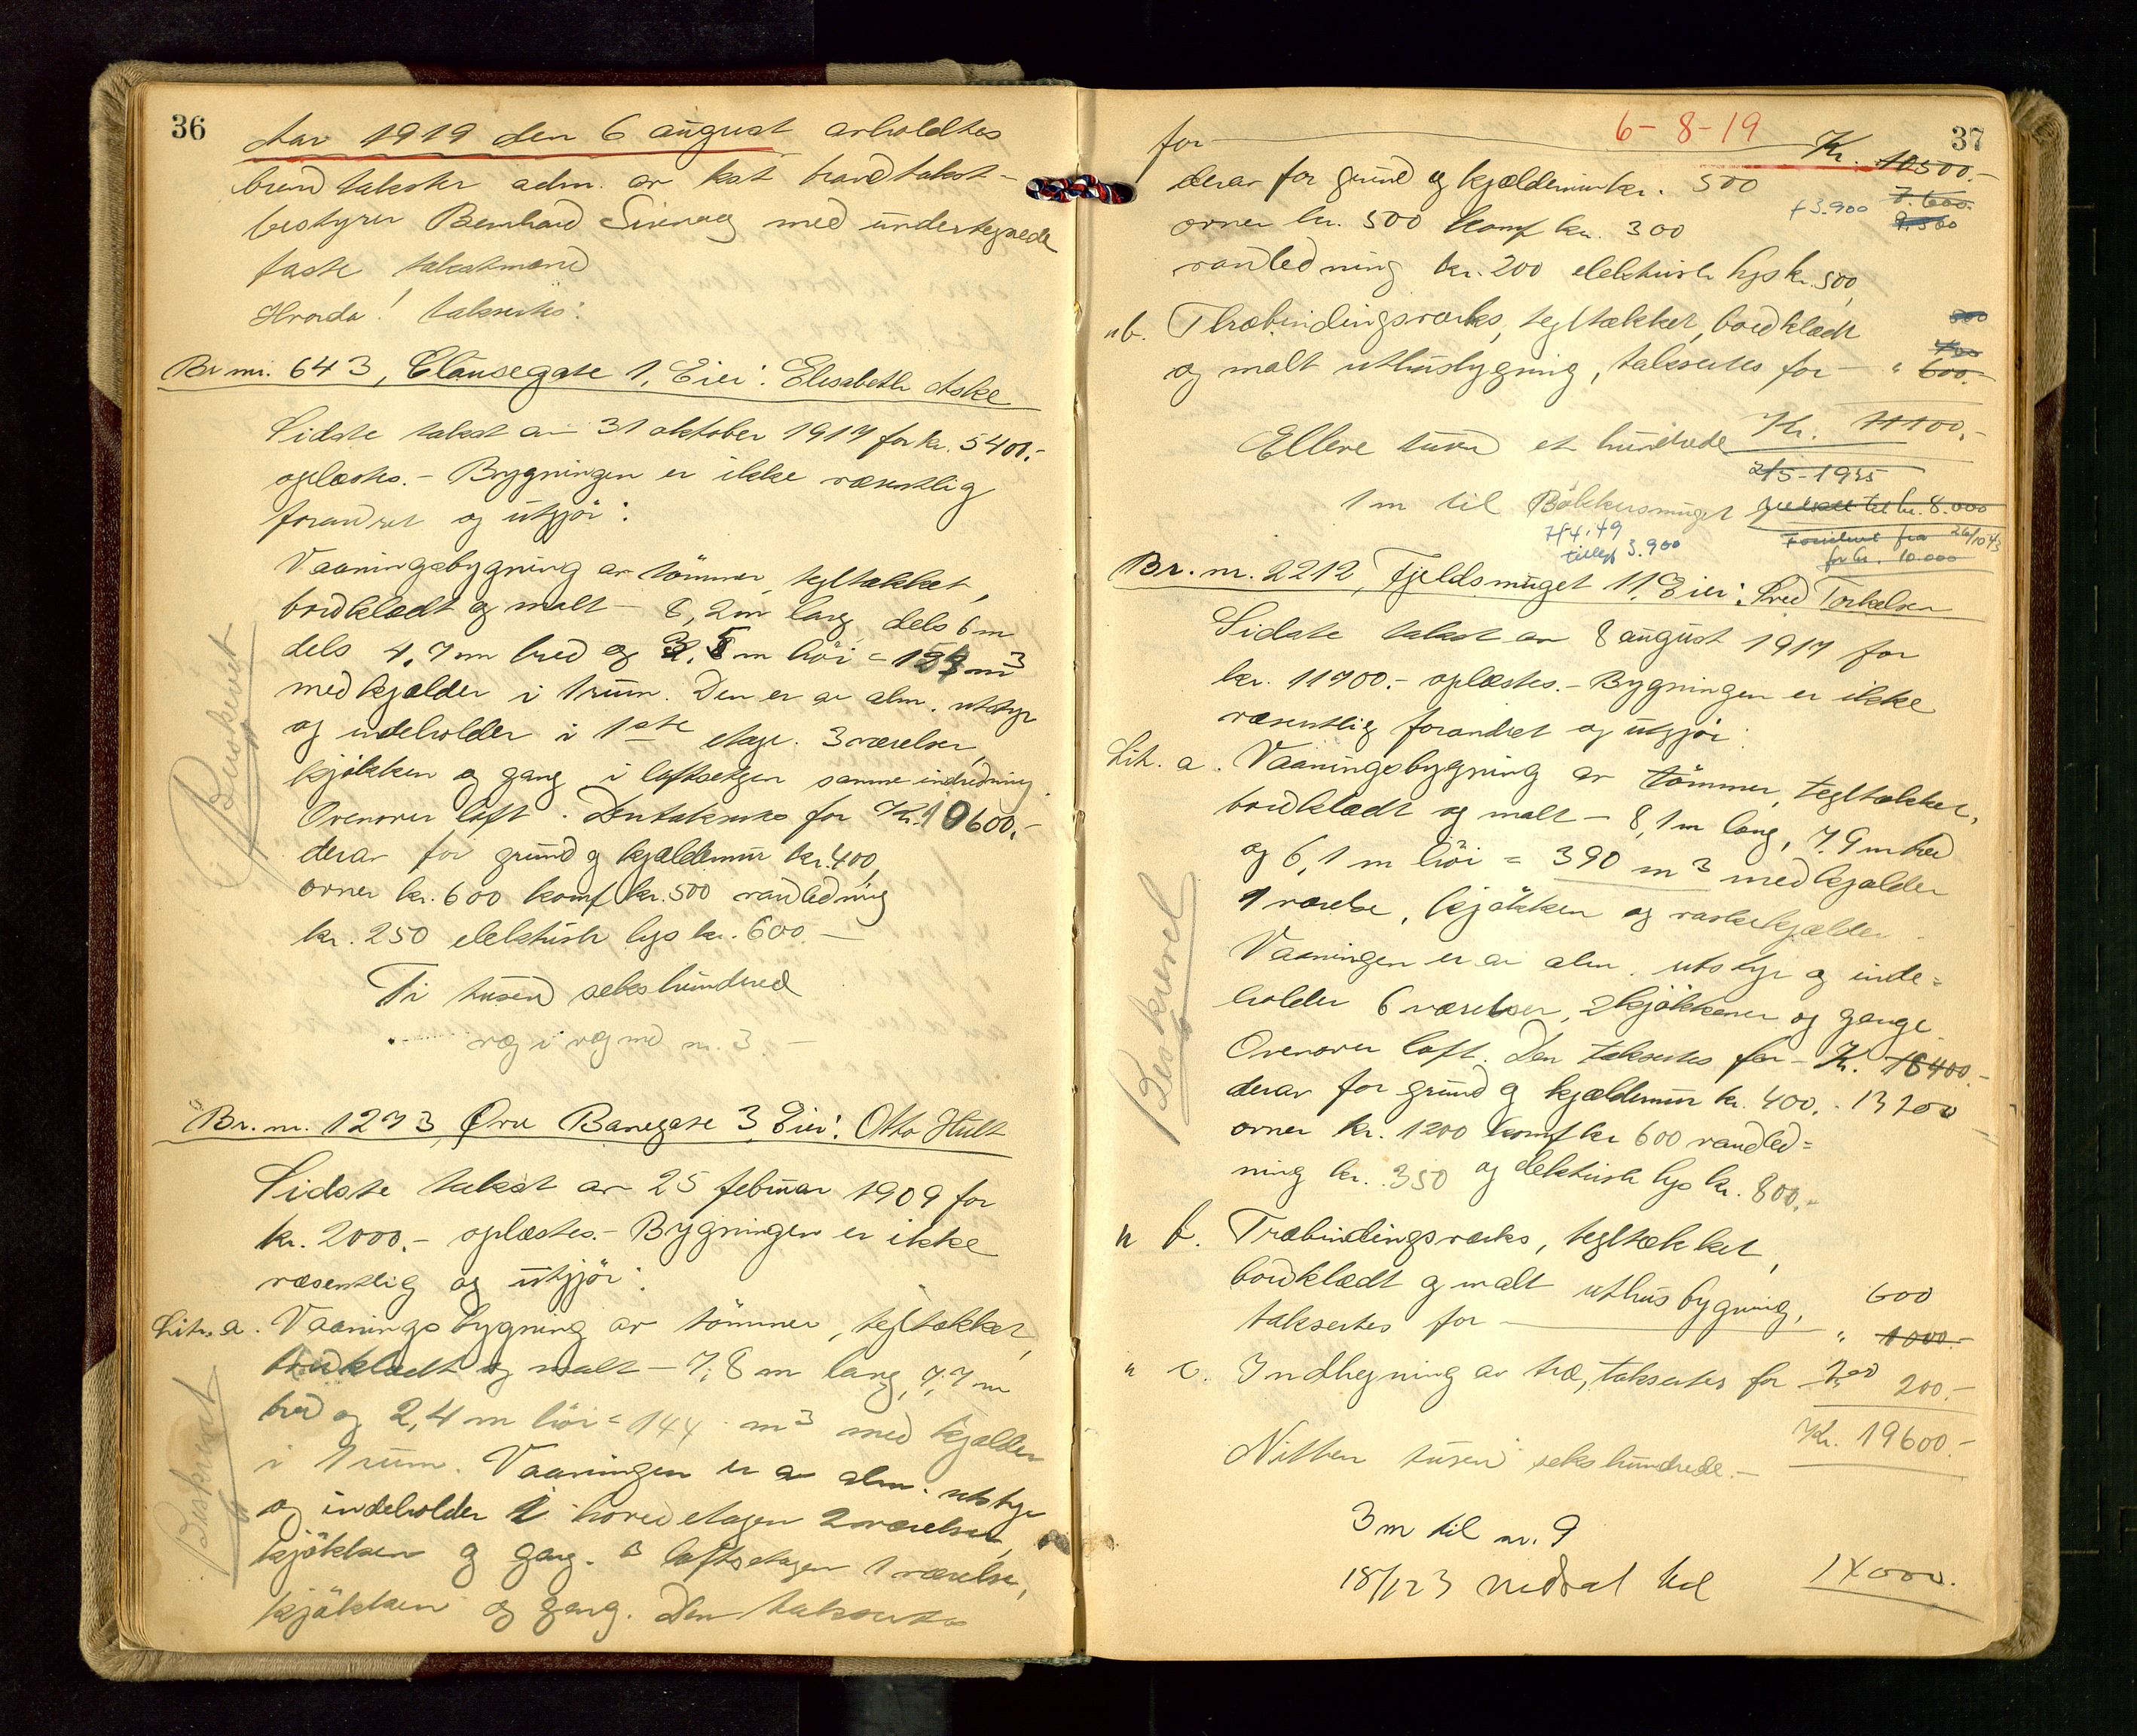 36
Aar 1919 den 6 august avholdtes
brandtakster adm. av kst brandtakst-
bestyrer Bernhard Sirevaag med undertegnede
faste takstmænd
Hvorda! takserts:
Br. nr. 643, Clausegate 1, Eier: Elisabeth Aske
Sidste takst av 31 oktober 1917 for kr. 5400.-
oplæstes. - Bygningen er ikke væsentlig
forandret og utgjør:
Vaaningsbygning av tömmer, tegltækket,
bordklædt og malt - 8,2m lang, dels 6m
dels 4.7m bred og 3.5m höi = 154 m³
med kjælder i 1 rum. Den er av alm. utstyr
og indeholder i 1ste etage. 3 værelser,
kjökken og gang i loftsetagen samme indredning.
Ovenover loft. Den takseres for Kr. 10600.-
derav for grund og kjældemur kr. 400,
ovner kr. 600 komf kr. 500 vandledning
kr. 250 elektrisk lys kr. 600.-
Ti tusen sekshundred
væg i væg med nr. 3. -
Beskrevet
Br. nr. 1273, Øvre Banegate 3, Eier: Otto Hult
Sidste takst av 25 februar 1909 for
kr. 2000.- oplæstes.- Bygningen er ikke
væsentlig og utgjör:
Litr. a. Vaaningsbygning av tömmer, tegltækket,
bordklædt og malt - 7,8m lang, 7,7m
bred og 2,4m höi = 144 m³ med kjælder
i 1 rum. Vaaningen er av alm. utstyr
og indeholder i hovedetagen 2 værelser,
kjökken og gang. I loftsetagen 1 værelse,
kjökken og gang. Den takseres
Beskrevet
37
6-8-19
for Kr. 10500.-
derav for grund og kjældemur kr. 500
7.600.
+3.900 9.500
ovner kr. 500 komf kr. 300
vandledning kr. 200 elektrisk lys kr. 500,
" b. Træbindingsverks, tegltækket, bordklædt
800
400
og malt uthusbygning, takseres for - " 600.-
Kr. 11100.-
Elleve tusen et hundrede
2/5-1935
1m til Bökkersmuget nedsat til kr. 8.000
7/4.49
tillegg 3.900
Forsikret fra 26/10 43
for kr. 10.000
Br. nr. 2212, Fjeldsmuget 11, Eier: Fred Torkelsen
Sidste takst av 8 august 1917 for
kr. 11700.- oplæstes.- Bygningen er ikke
væsentlig forandret og utgjör:
Lit. a. Vaaningsbygning av tömmer, tegltækket,
bordklædt og malt - 8,1m lang, 7.9m bred
og 6,1m höi = 390 m³ med kjælder
1 værelse, kjökken og vaskekjælder.
Vaaningen er av alm. utstyr og inde=
holder 6 værelser, 2 kjökkener og gange
Ovenover loft. Den takseres for - Kr. 18400.-
derav for grund og kjældemur kr. 400.- 13200
ovner kr. 1200 komf kr 600 vandled=
ning kr. 350 og elektrisk lys kr. 800.-
Beskrevet
" b. Træbindingsverks, tegltækket,
bordklædt og malt uthusbygning, 600
takseres for " 1000.-
" c. Indhegning av træ, takseres for 200 200.-
Kr. 19600.-
Nitten tusen sekshundrede.-
3m til nr. 9
18/1 23 nedsat til 14000.